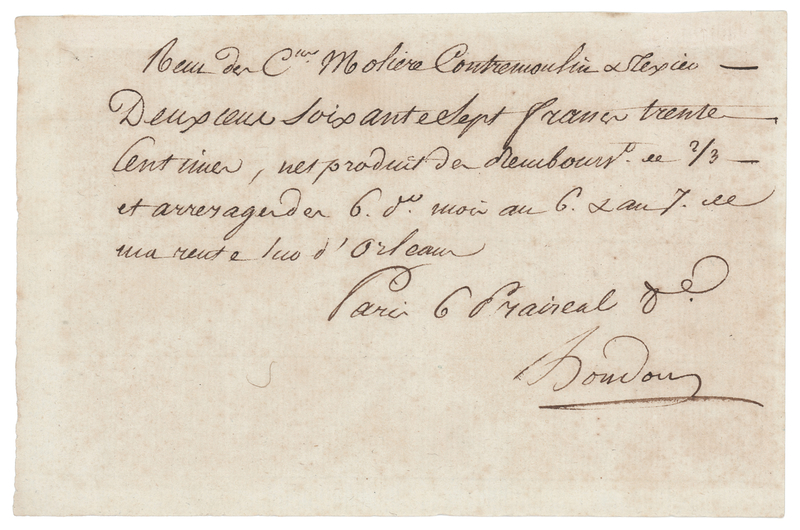 Reçu des C.ens Moliere Contremoulin & Texier —
Deux cens soixante Sept francs trente
Centimes, net produit des Rembours.t de 2/3 —
et arrerages des 6. d.ers mois an 6. & an 7. de
ma rente sur d'Orleans
Paris 6 Praireal 8.e
houdon